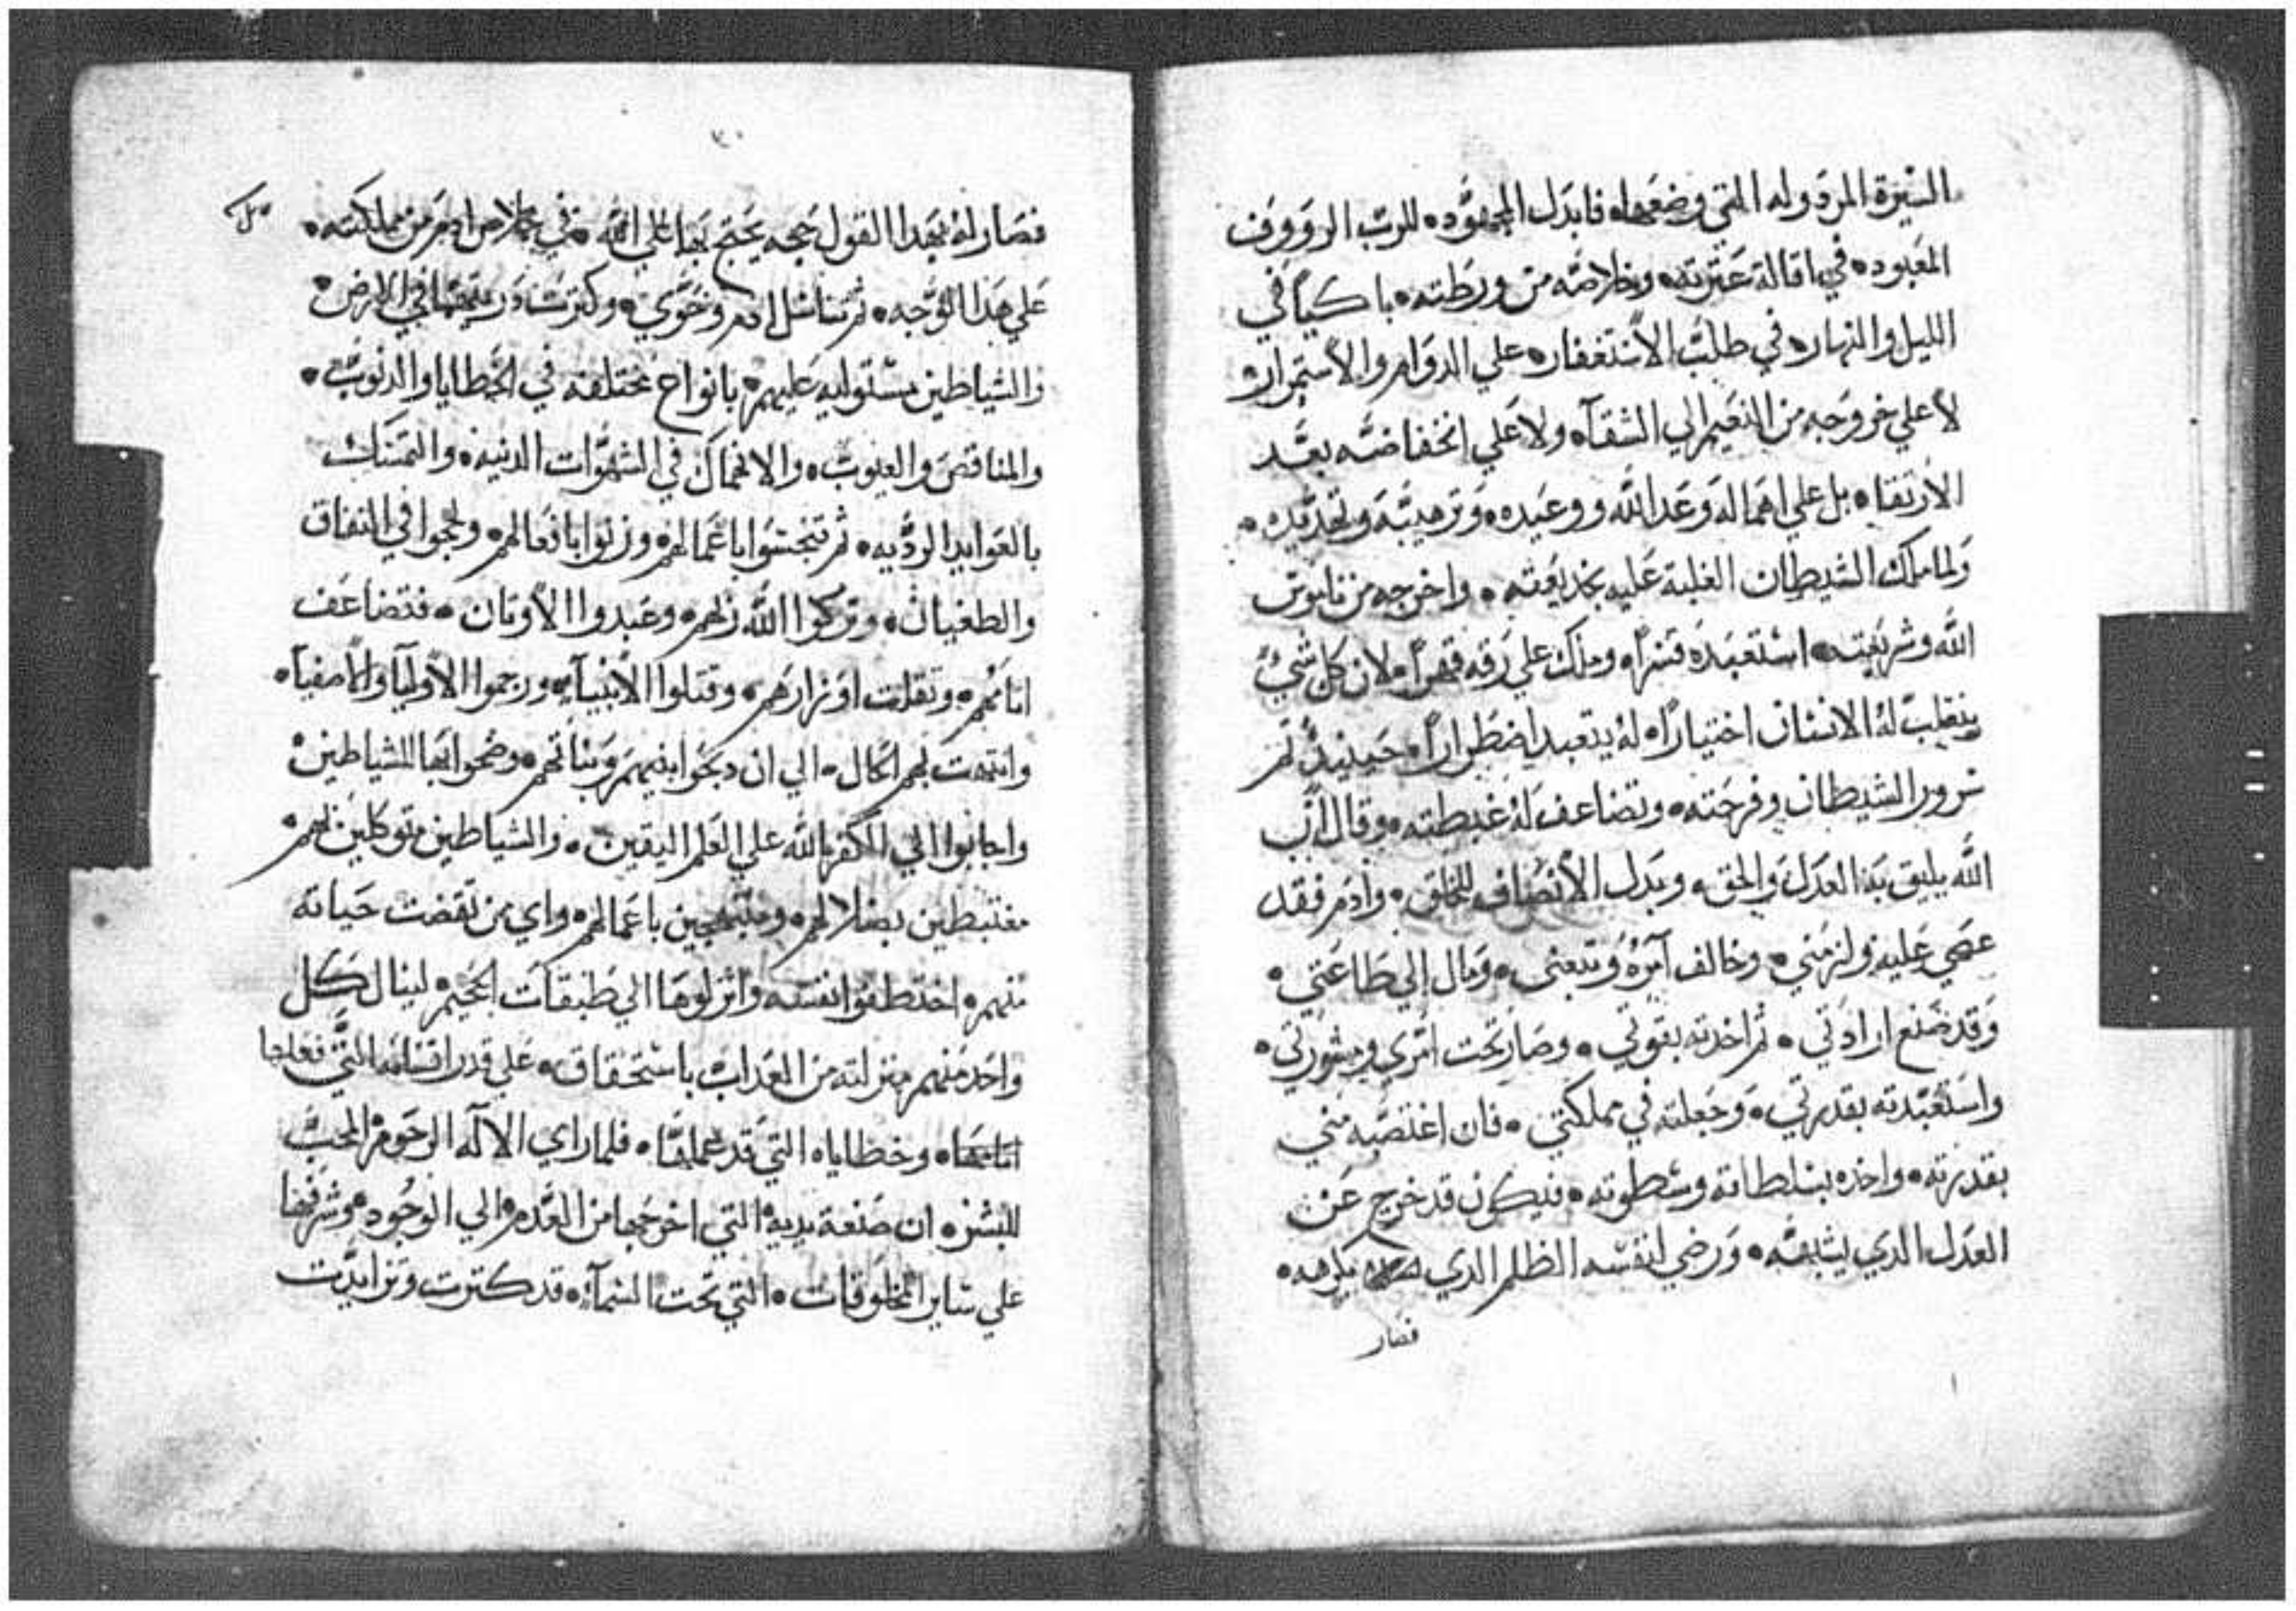 السيرة المردوله التي وضعها ٥ فابدل المجهوده للرب الرووف
المعبود ٥ في اقالة عثرته ٥ وخلاصه من ورطته ٥ باكياً في
الليل والنهار ٥ في طلب الاستغفار ٥ علي الدوام والاستمرار
لا علي خروجه من النعيم الي الشقآ ٥ ولا علي انخفاضه بعد
الارتقا ٥ بل علي اهماله وعد الله ووعيده ٥ وترهيبه وتهديده ٥
ولما ملك الشيطان الغلبة عليه بخديعته ٥ واخرجه من ناموس
الله وشريعته ٥ استعبده قسراً ٥ وملك علي رقه قهراً ٥ لان كل شيً
ينغلب له الانسان اختياراً ٥ له يتعبد اضطراراً ٥ حينيدٍ تم
سرور الشيطان وفرحته ٥ وتضاعف له غبطته ٥ وقال ان
الله يليق به العدل والحق ٥ وبدل الانصاف للخلق ٥ وادم فقد
عصي عليه ولزمني ٥ وخالف آمره وتبعني ٥ ومال الي طاعتي ٥
وقد صنع ارادتي ٥ ثم اخدته بقوتي ٥ وصار تحت امري ومشورتي ٥
واستعبدته بقدرتي ٥ وجعلته في مملكتي ٥ فان اغتصبه مني
بقدرته ٥ واخده بسلطانه وسطوته ٥ فيكون قد خرج عن
العدل الدي يشبهه ٥ ورضي لنفسه الظلم الدي يكرهه ٥
فصار
٣٠
فصار له بهدا القول حجه يحتج بها علي الله ٥ في خلاص ادم من مملكته ٥
علي هدا الوجه ٥ ثم تناسل ادم وحوي ٥ وكترت دريتهما في الارض ٥
والشياطين مستوليه عليهم ٥ بانواع مختلفه في الخطايا والدنوب ٥
والمناقص والعيوب ٥ والانهماك في الشهوات الدنيه ٥ والتمسك
بالعوايد الرديه ٥ ثم تنجسوا باعمالهم ٥ وزنوا بافعالهم ٥ ولجوا في النفاق
والطغيان ٥ وتركوا الله ربهم ٥ وعبدوا الاوتان ٥ فتضاعف
اتامهم ٥ وتقلت اوزارهم ٥ وقتلوا الانبيآ ٥ ورجموا الاوليآ والاصفيآ ٥
وانتهت بهم الحال ٥ الي ان دبحوا بنيهم وبناتهم ٥ وضحوا بها للشياطين ٥
واجابوا الي الكفر بالله علي العلم اليقين ٥ والشياطين متوكلين بهم ٥
مغتبطين بضلالهم ٥ ومبتهجين باعمالهم ٥ واي من تقضت حياته
منهم ٥ اختطفوا نفسه وانزلوها الي طبقات الجحيم ٥ لينال كل
واحد منهم منزلته من العداب باستحقاق ٥ علي قدر اقسامه التي فعلها
اتامها ٥ وخطاياه التي قد عملها ٥ فلما راي الاله الرحوم المحب
للبشر ٥ ان صنعة يديه التي اخرجها من العدم الي الوجود ٥ وشرفها
علي ساير المخلوقات ٥ التي تحت السمآ ٥ قد كترت وتزايدت